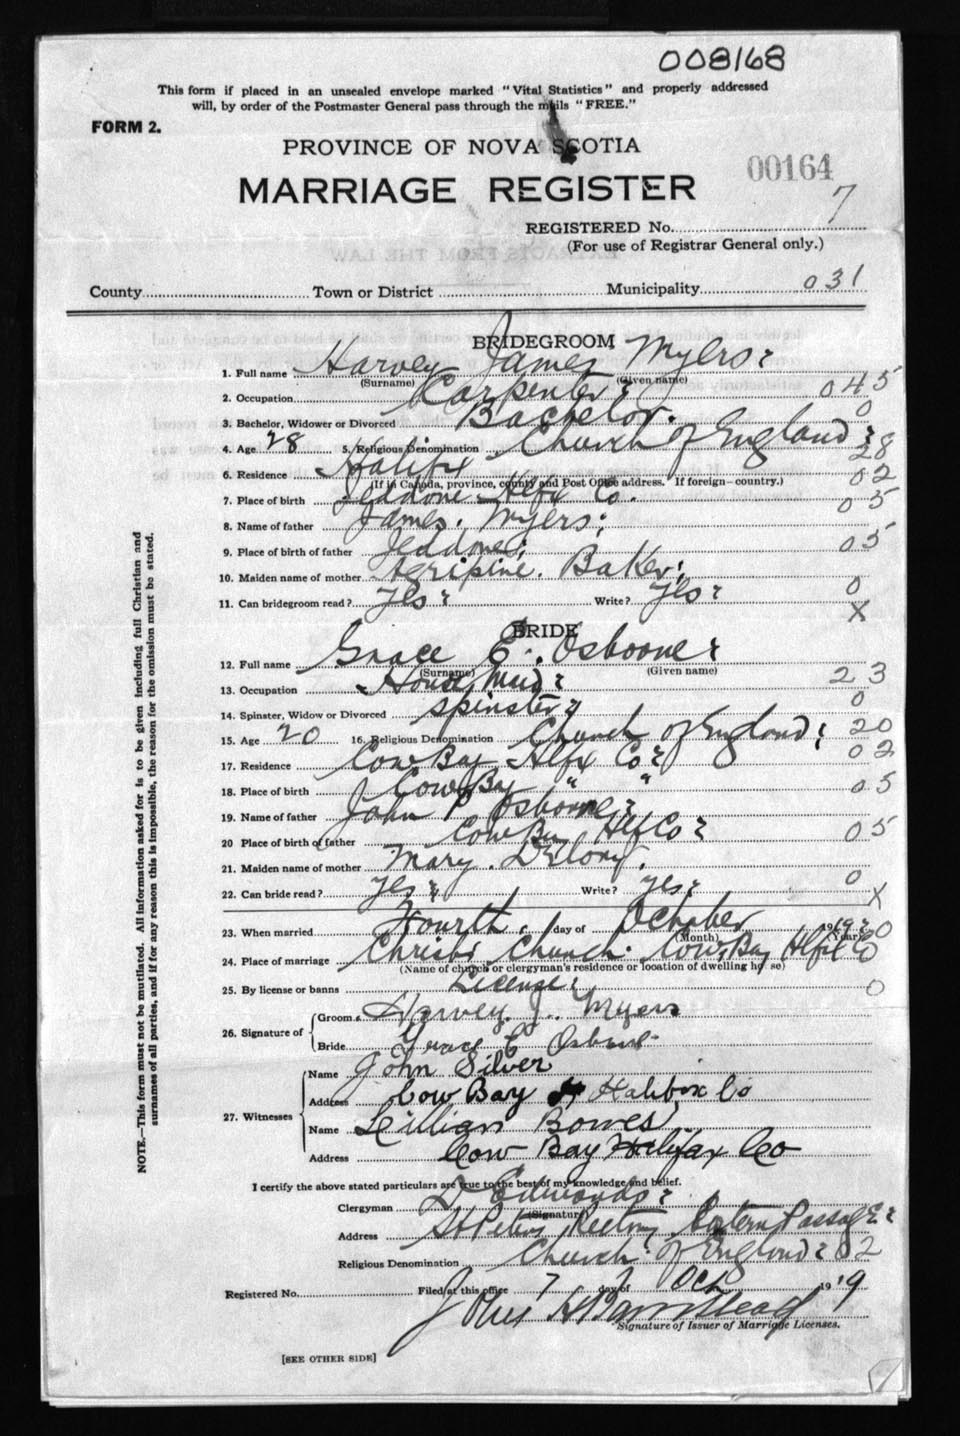 008168
This form if placed in an unsealed envelope marked "Vital Statistics" and properly addressed
will, by order of the Postmaster General pass through the mails "FREE."
FORM 2.
PROVINCE OF NOVA SCOTIA
00164
MARRIAGE REGISTER
7
REGISTERED No.
(For use of Registrar General only.)
County Town or District Municipality 031
BRIDEGROOM
1. Full name Harvey James Myers
(Surname) (Given name)
2. Occupation Carpenter 045
3. Bachelor, Widower or Divorced Bachelor. 0
4. Age 28 5. Religious Denomination Church of England 28
6. Residence Halifax 02
(If in Canada, province, county and Post Office address. If foreign—country.)
7. Place of birth Jeddore Hlfx Co. 05
8. Name of father James Myers
9. Place of birth of father Jeddore 05
10. Maiden name of mother Agripine Baker
11. Can bridegroom read? Yes Write? Yes 0
X
BRIDE
12. Full name Grace E. Osborne
(Surname) (Given name)
13. Occupation House Maid 23
14. Spinster, Widow or Divorced Spinster 0
15. Age 20 16. Religious Denomination Church of England 20
17. Residence Cow Bay Hlfx Co 02
18. Place of birth Cow Bay " " 05
19. Name of father John P Osborne
20 Place of birth of father Cow Bay Hlf Co 05
21. Maiden name of mother Mary
22. Can bride read? Yes Write? Yes 0
X
23. When married Fourth day of October 1919 0
(Month) (Year)
24. Place of marriage Christ Church Cow Bay Hlfx Co 0
(Name of church or clergyman's residence or location of dwelling house)
25. By license or banns License 0
26. Signature of Groom Harvey J. Myers
Bride Grace E Osborne
27. Witnesses Name John Silver
Address Cow Bay Halifax Co
Name Lillian Bowes
Address Cow Bay Halifax Co
I certify the above stated particulars are true to the best of my knowledge and belief.
Clergyman D Edwards
(Signature)
Address St Peters Rectory Eastern Passage
Religious Denomination Church of England 02
Registered No. Filed at this office 7 day of Oct 1919
Signature of Issuer of Marriage Licenses.
[SEE OTHER SIDE]
NOTE.—This form must not be mutilated. All information asked for is to be given including full Christian and
surnames of all parties, and if for any reason this is impossible, the reason for the omission must be stated.